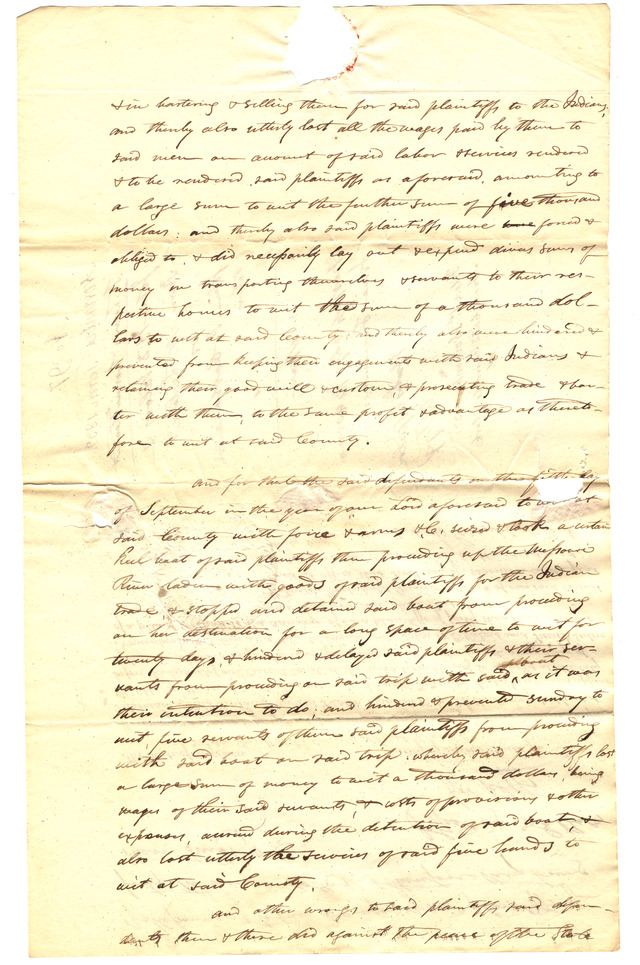 & in bartering & selling them for said plaintiffs to the Indians,
and thereby also utterly lost all the wages paid by them to
said men on account of said labor & services rendered
& to be rendered said plaintiffs as aforesaid, amounting to
a large sum to wit the further sum of five thousand
dollars: and thereby also said plaintiffs were forced &
obliged to & did necessarily lay out & expend divers sums of
money in transporting themselves & servants to their res-
pective homes to wit the sum of a thousand dol-
lars to wit at said County: and thereby also were hindered &
prevented from keeping their engagements with said Indians &
retaining their good will & custom, & prosecuting trade & bar-
ter with them, to the same profit & advantage as thereto-
fore to wit at said County.
And for that the said defendants on the fifth day
of September in the year of our Lord aforesaid to wit at
said County with force & arms &c. seized & took a certain
Keel boat of said plaintiffs then proceeding up the Missouri
River laden with goods of said plaintiffs for the Indian
trade & stopped and detained said boat from proceeding
on her destination for a long space of time to wit for
twenty days, & hindered & delayed said plaintiffs & their ser-
vants from proceeding on said trip with said boat, as it was
their intention to do; and hindered & prevented sundry to
wit five servants of them said plaintiffs from proceeding
with said boat on said trip: whereby said plaintiffs lost
a large sum of money to wit a thousand dollars, being
wages of their said servants, & costs of provisions & other
expenses, accrued during the detention of said boat, &
also lost utterly the services of said five hands to
wit at said County.
And other wrongs to said plaintiffs said defen-
dants then & there did against the peace of the State